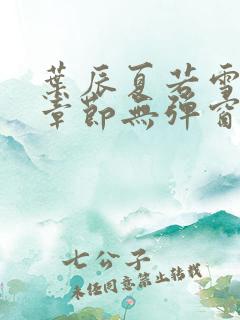 葉辰夏若雪
章節無彈窗
七公子
未經同意禁止轉載